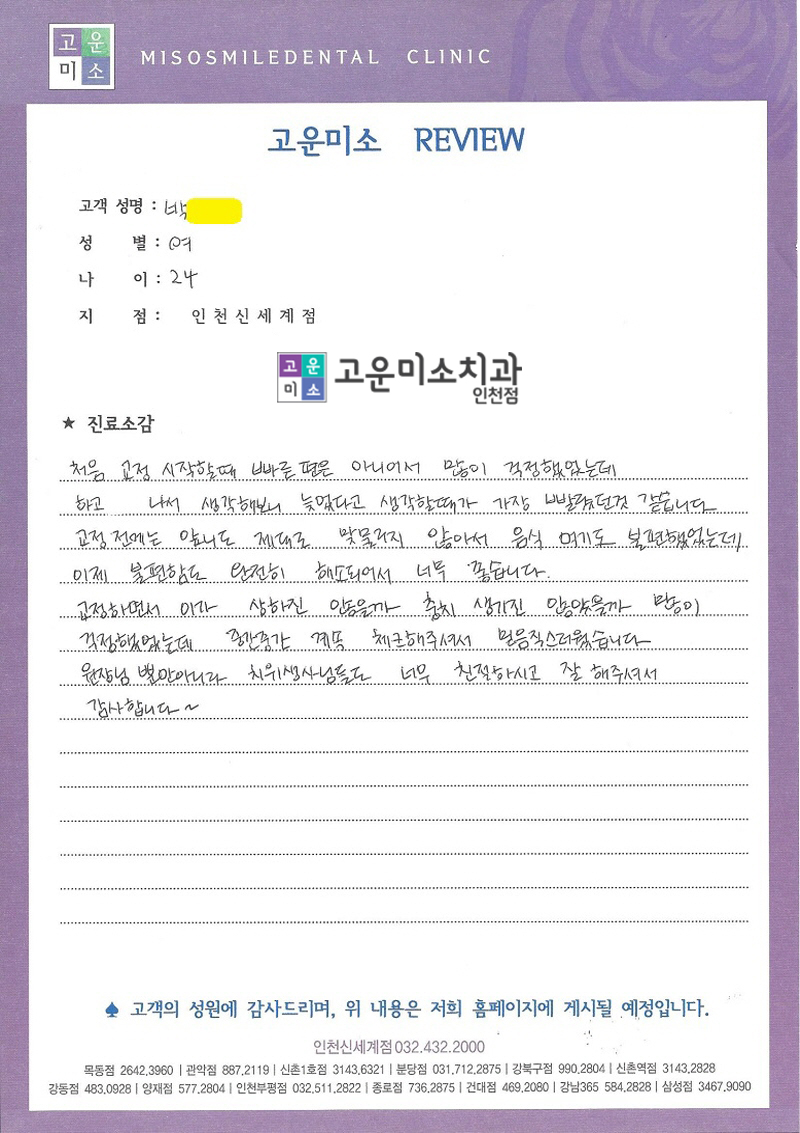 고운
미소
MISOSMILEDENTAL CLINIC
고운미소 REVIEW
고객 성명 : 박
성 별 : 여
나 이 : 24
지 점 : 인천신세계점
고운
미소
고운미소치과
인천점
★ 진료소감
처음 교정 시작할때 빠른편은 아니어서 많이 걱정했었는데
하고 나서 생각해보니 늦었다고 생각할때가 가장 빨랐던것 같습니다
교정 전에는 앞니도 제대로 맞물리지 않아서 음식 먹기도 불편했었는데
이제 불편함도 완전히 해소되어서 너무 좋습니다.
교정하면서 이가 상하진 않을까 충치 생기진 않았을까 많이
걱정했었는데 중간중간 계속 체크해주셔서 믿음직스러웠습니다
원장님 뿐만아니라 치위생사님들도 너무 친절하시고 잘 해주셔서
감사합니다~
♠ 고객의 성원에 감사드리며, 위 내용은 저희 홈페이지에 게시될 예정입니다.
인천신세계점 032.432.2000
목동점 2642.3960 | 관악점 887.2119 | 신촌1호점 3143.6321 | 분당점 031.712.2875 | 강북구점 990.2804 | 신촌역점 3143.2828
강동점 483.0928 | 양재점 577.2804 | 인천부평점 032.511.2822 | 종로점 736.2875 | 건대점 469.2080 | 강남365 584.2828 | 삼성점 3467.9090